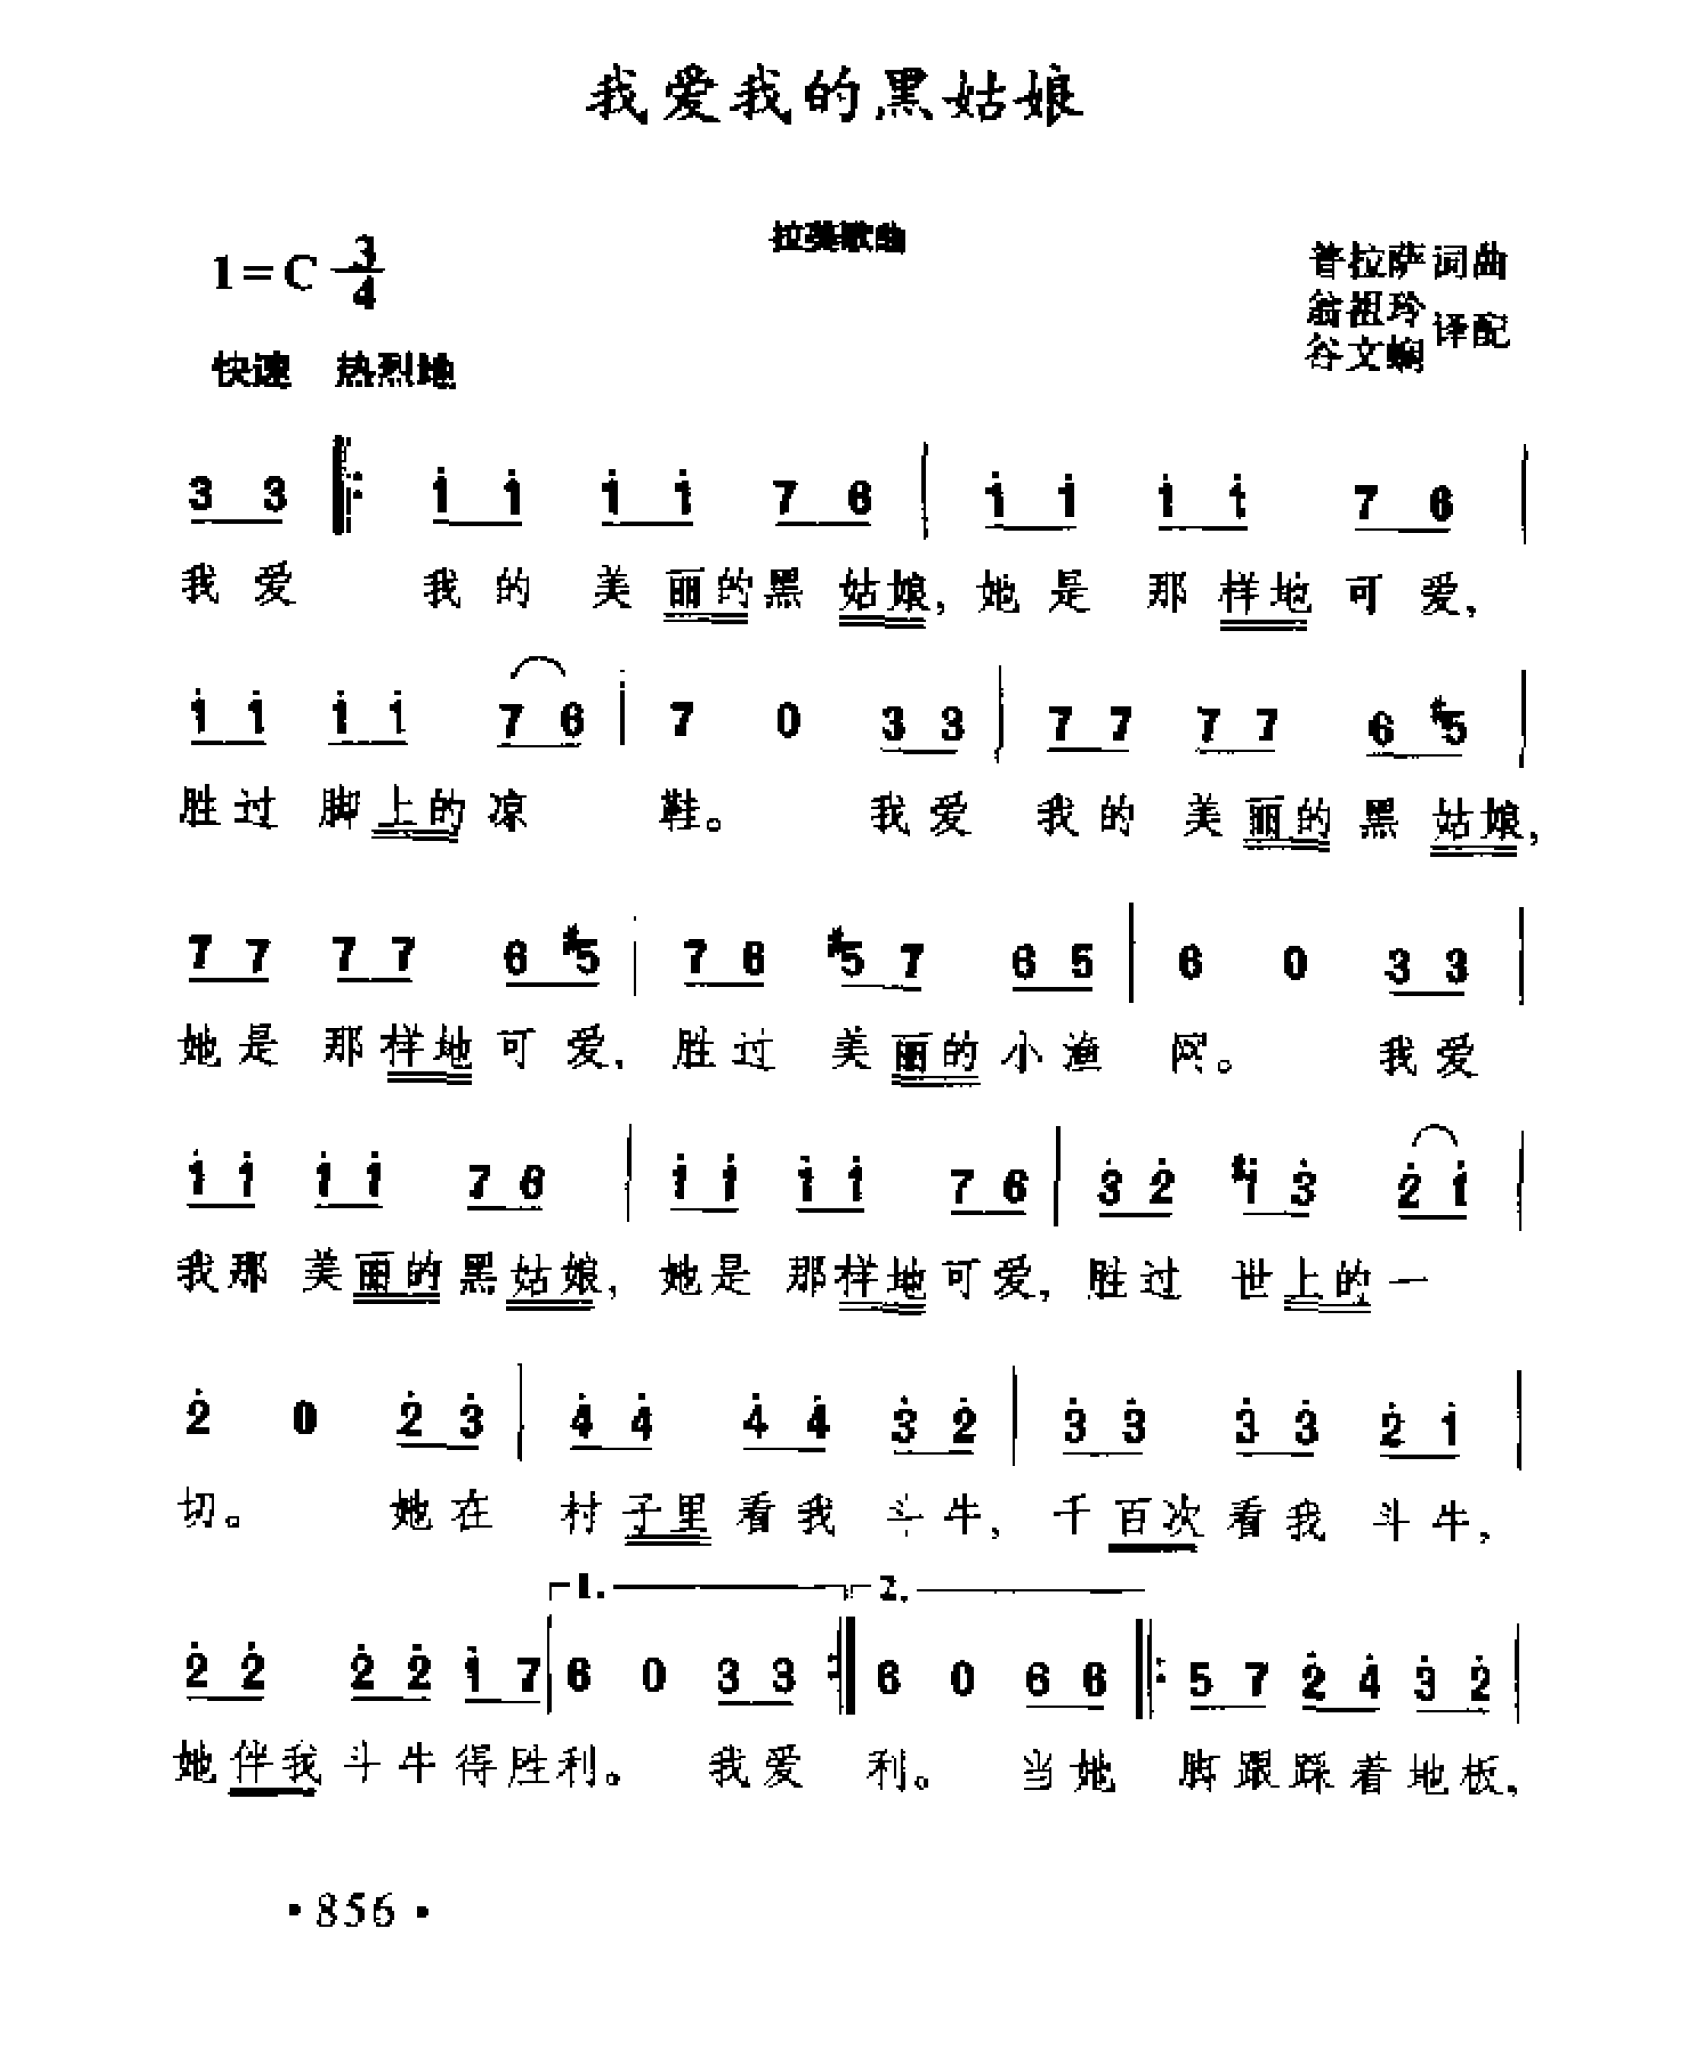 我爱我的黑姑娘
拉美歌曲
1=C 3/4
普拉萨 词曲
翁祖玲
谷文娴 译配
快速 热烈地
3 3 ‖: i i i i 7 6 | i i i i 7 6 |
我爱 我的美丽的黑姑娘,她是那样地可爱,
i i i i 7 6 | 7 0 3 3 | 7 7 7 7 6 #5 |
胜过脚上的凉鞋。 我爱我的美丽的黑姑娘,
7 7 7 7 6 #5 | 7 6 #5 7 6 5 | 6 0 3 3 |
她是那样地可爱,胜过美丽的小渔网。 我爱
i i i i 7 6 | i i i i 7 6 | 3̇ 2̇ #i 3̇ 2̇ i |
我那美丽的黑姑娘,她是那样地可爱,胜过世上的一
2̇ 0 2̇ 3̇ | 4̇ 4̇ 4̇ 4̇ 3̇ 2̇ | 3̇ 3̇ 3̇ 3̇ 2̇ i |
切。 她在村子里看我斗牛,千百次看我斗牛,
1. 2.
2̇ 2̇ 2̇ 2̇ i 7 | 6 0 3 3 :‖ 6 0 6 6 ‖: 5 7 2̇ 4̇ 3̇ 2̇ |
她伴我斗牛得胜利。 我爱 利。 当她脚跟踩着地板,
·856·